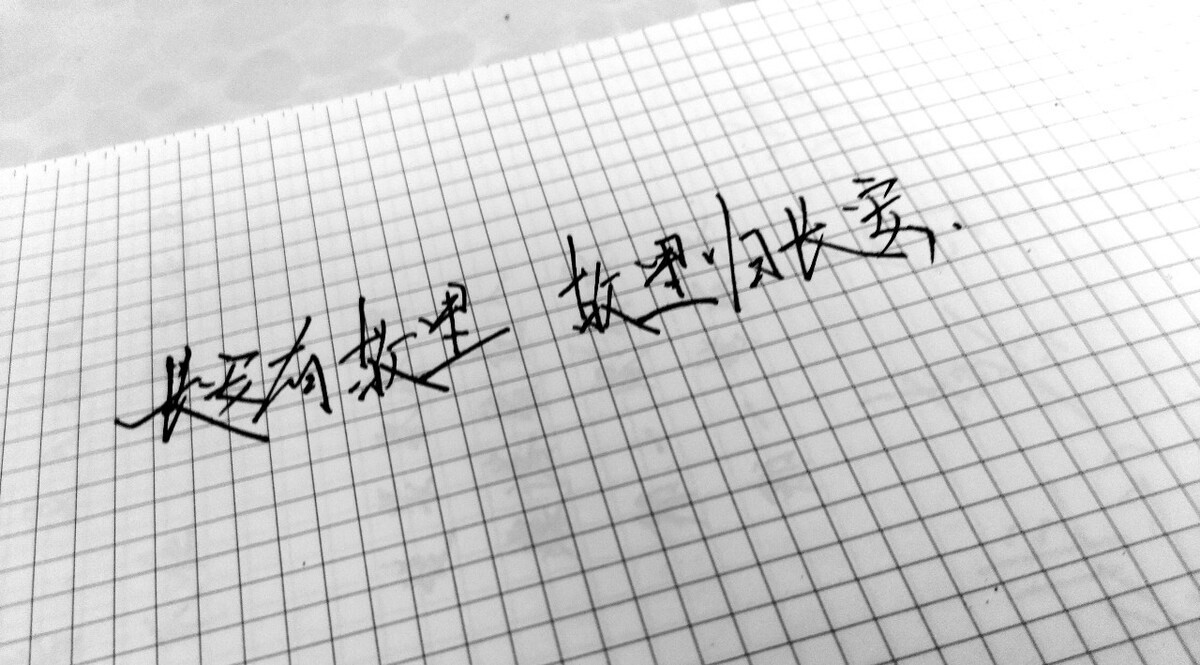 长安有故里 故里归长安.